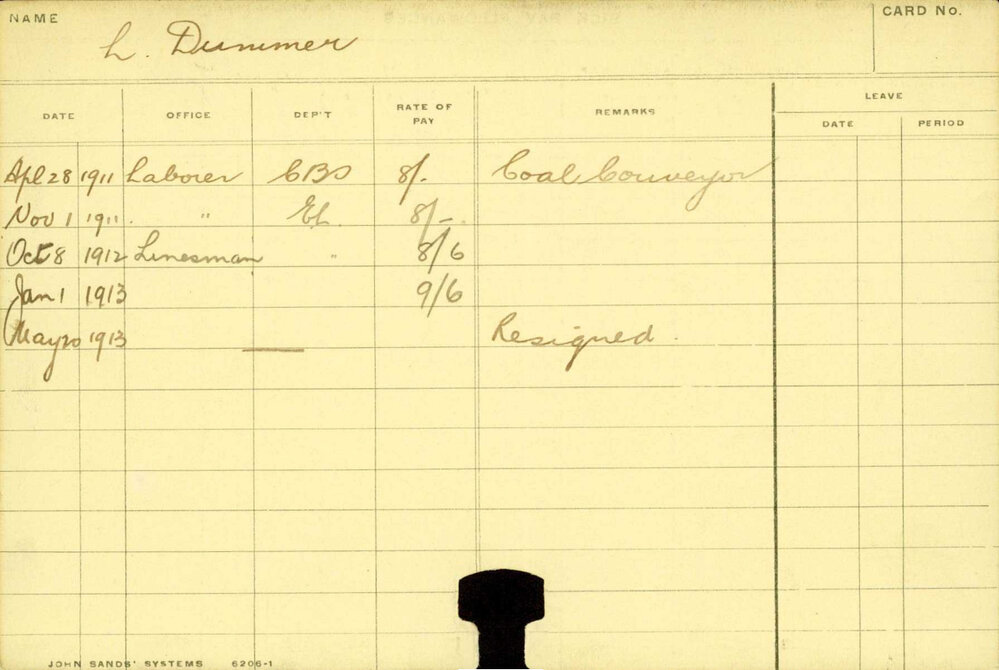 NAME
L. Dummer
CARD No.
DATE OFFICE DEP'T RATE OF PAY REMARKS LEAVE
DATE PERIOD
Apl 28 1911 Laborer CBS 8/- Coal Conveyor
Nov 1 1911 " EL 8/-
Oct 8 1912 Linesman " 8/6
Jan 1 1913 9/6
May 20 1913 Resigned
JOHN SANDS' SYSTEMS 6206-1